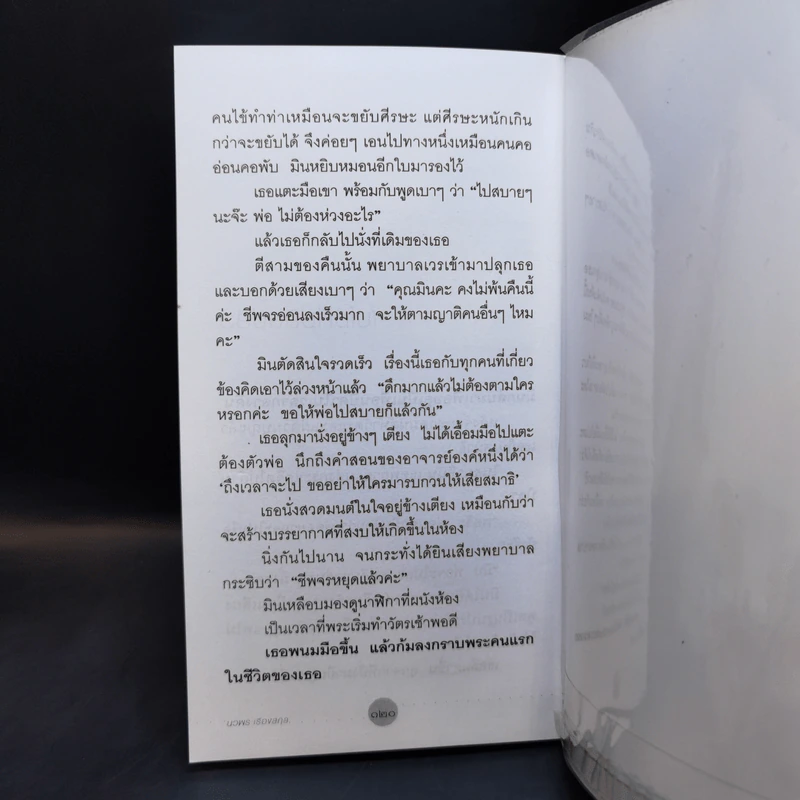 คนไข้ทำท่าเหมือนจะขยับศีรษะ แต่ศีรษะหนักเกิน
กว่าจะขยับได้ จึงค่อยๆ เอนไปทางหนึ่งเหมือนคนคอ
อ่อนคอพับ มินหยิบหมอนอีกใบมารองไว้
เธอแตะมือเขา พร้อมกับพูดเบาๆ ว่า “ไปสบายๆ
นะจ๊ะ พ่อ ไม่ต้องห่วงอะไร”
แล้วเธอก็กลับไปนั่งที่เดิมของเธอ
ตีสามของคืนนั้น พยาบาลเวรเข้ามาปลุกเธอ
และบอกด้วยเสียงเบาๆ ว่า “คุณมินคะ คงไม่พ้นคืนนี้
ค่ะ ชีพจรอ่อนลงเร็วมาก จะให้ตามญาติคนอื่นๆ ไหม
คะ”
มินตัดสินใจรวดเร็ว เรื่องนี้เธอกับทุกคนที่เกี่ยว
ข้องคิดเอาไว้ล่วงหน้าแล้ว “ดึกมากแล้วไม่ต้องตามใคร
หรอกค่ะ ขอให้พ่อไปสบายก็แล้วกัน”
เธอลุกมานั่งอยู่ข้างๆ เตียง ไม่ได้เอื้อมมือไปแตะ
ต้องตัวพ่อ นึกถึงคำสอนของอาจารย์องค์หนึ่งได้ว่า
‘ถึงเวลาจะไป ขออย่าให้ใครมารบกวนให้เสียสมาธิ’
เธอนั่งสวดมนต์ในใจอยู่ข้างเตียง เหมือนกับว่า
จะสร้างบรรยากาศที่สงบให้เกิดขึ้นในห้อง
นิ่งกันไปนาน จนกระทั่งได้ยินเสียงพยาบาล
กระซิบว่า “ชีพจรหยุดแล้วค่ะ”
มินเหลือบมองดูนาฬิกาที่ผนังห้อง
เป็นเวลาที่พระเริ่มทำวัตรเช้าพอดี
เธอพนมมือขึ้น แล้วก้มลงกราบพระคนแรก
ในชีวิตของเธอ
นวพร เรืองสกุล
๑๒๑